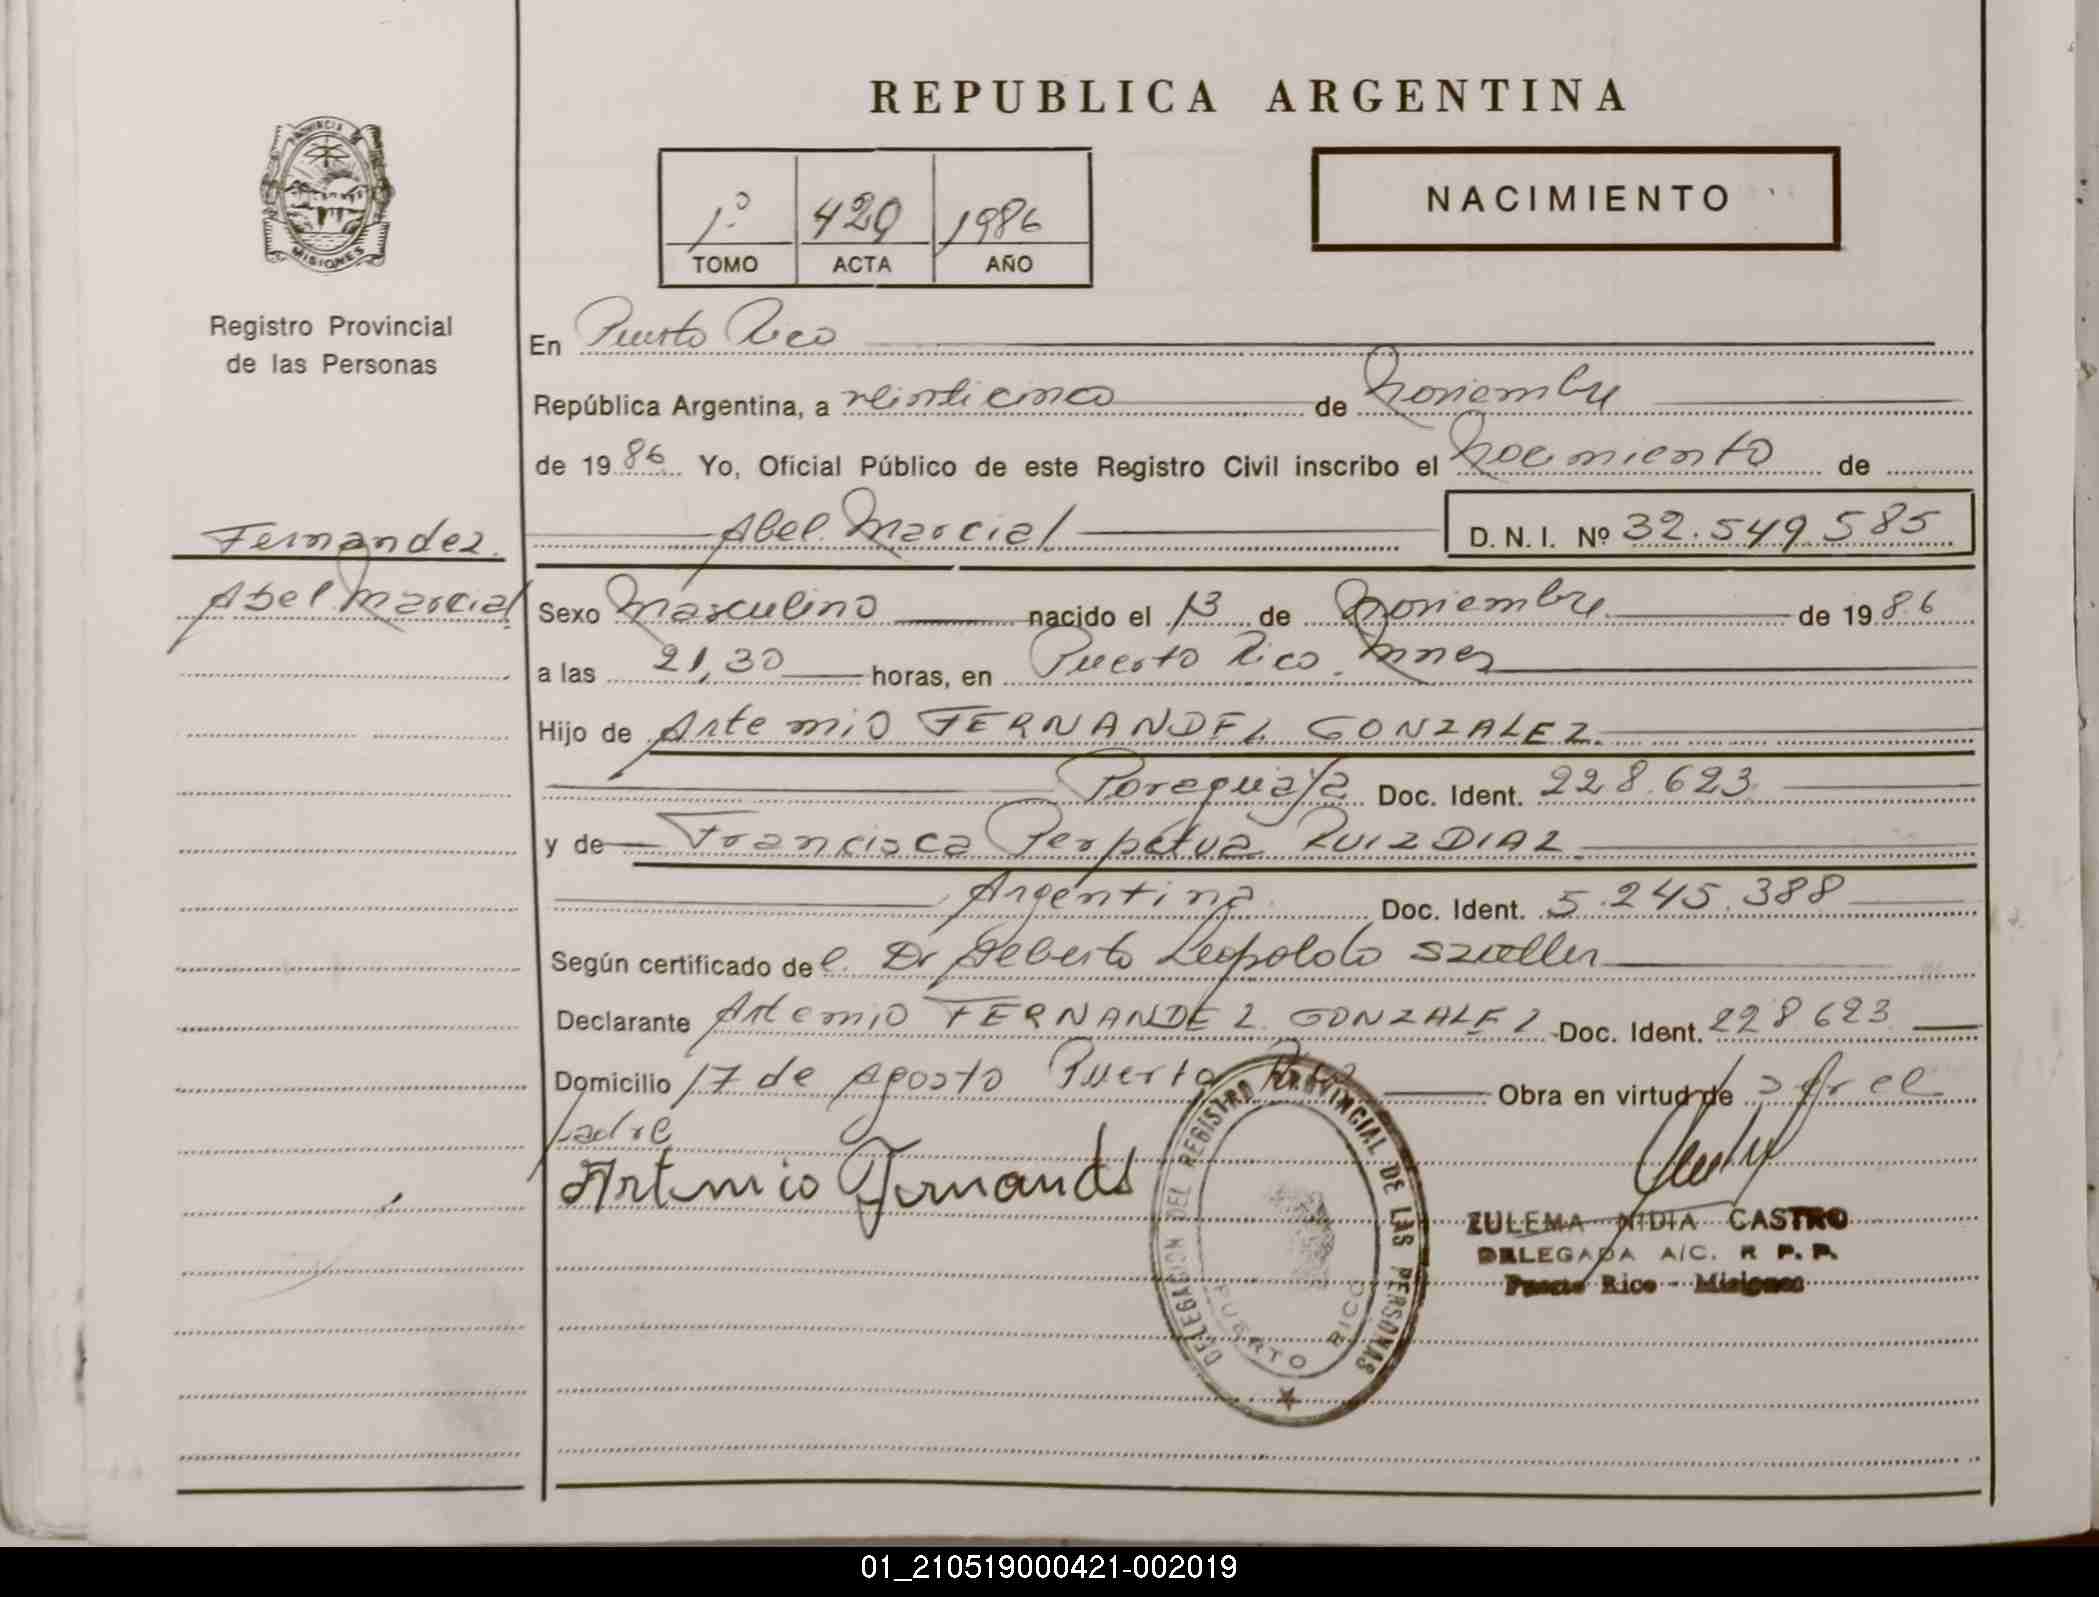 REPUBLICA ARGENTINA
PROVINCIA DE
MISIONES
Registro Provincial
de las Personas
1º 429 1986
TOMO ACTA AÑO
NACIMIENTO
En Puerto Rico
República Argentina, a veinticinco de Noviembre
de 1986 Yo, Oficial Público de este Registro Civil inscribo el Nacimiento de
Abel Marcial D. N. I. Nº 32.549.585
Fernandez
Abel Marcial
Sexo Masculino nacido el 13 de Noviembre de 1986
a las 21,30 horas, en Puerto Rico. Mnes
Hijo de Artemio FERNANDEZ GONZALEZ
Paraguaya Doc. Ident. 228.623
y de Francisca Perpetua RUIZ DIAZ
Argentina Doc. Ident. 5.245.388
Según certificado del Dr Alberto Leopoldo
Declarante Artemio FERNANDEZ GONZALEZ Doc. Ident. 228623
Domicilio 17 de Agosto Puerto Rico Obra en virtud de ser el
padre
Artemio Fernandez
DELEGACION DEL REGISTRO PROVINCIAL DE LAS PERSONAS
PUERTO RICO
ZULEMA NIDIA CASTRO
DELEGADA A/C. R. P. P.
Puerto Rico - Misiones
01_210519000421-002019